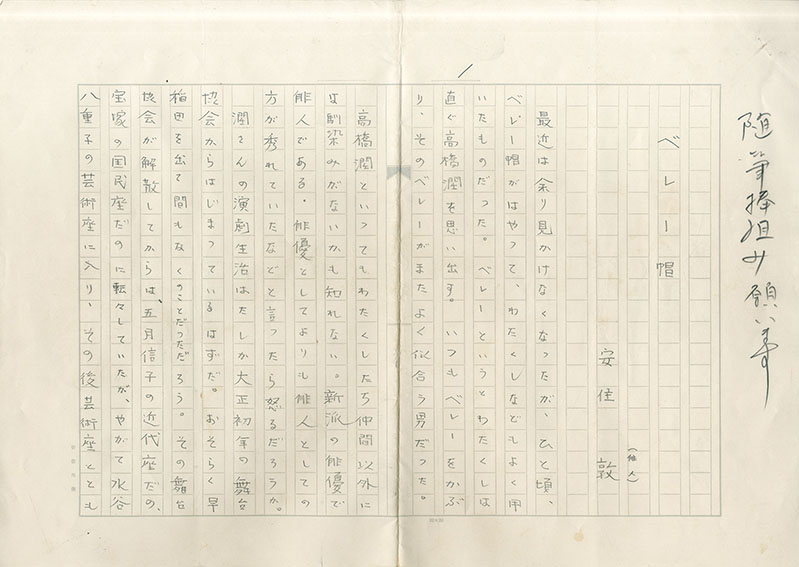 随筆棒組み願います
ベレー帽
(俳人)
安住 敦
最近は余り見かけなくなったが、ひと頃、
ベレー帽がはやって、わたくしなどもよく用
いたものだった。ベレーというとわたくしは
直ぐ高橋潤を思い出す。いつもベレーをかぶ
り、そのベレーがまたよく似合う男だった。
高橋潤といってもわたくしたち仲間以外に
は馴染みがないかも知れない。新派の俳優で
俳人である。俳優としてよりも俳人としての
方が秀れていたなどと言ったら怒るだろうか。
潤さんの演劇生活はたしか大正初年の舞台
協会からはじまっているはずだ。おそらく早
稲田を出て間もなくのことだっただろう。その舞台
協会が解散してからは、五月信子の近代座だの、
宝塚の国民座だのに転々していたが、やがて水谷
八重子の芸術座に入り、その後芸術座ととも